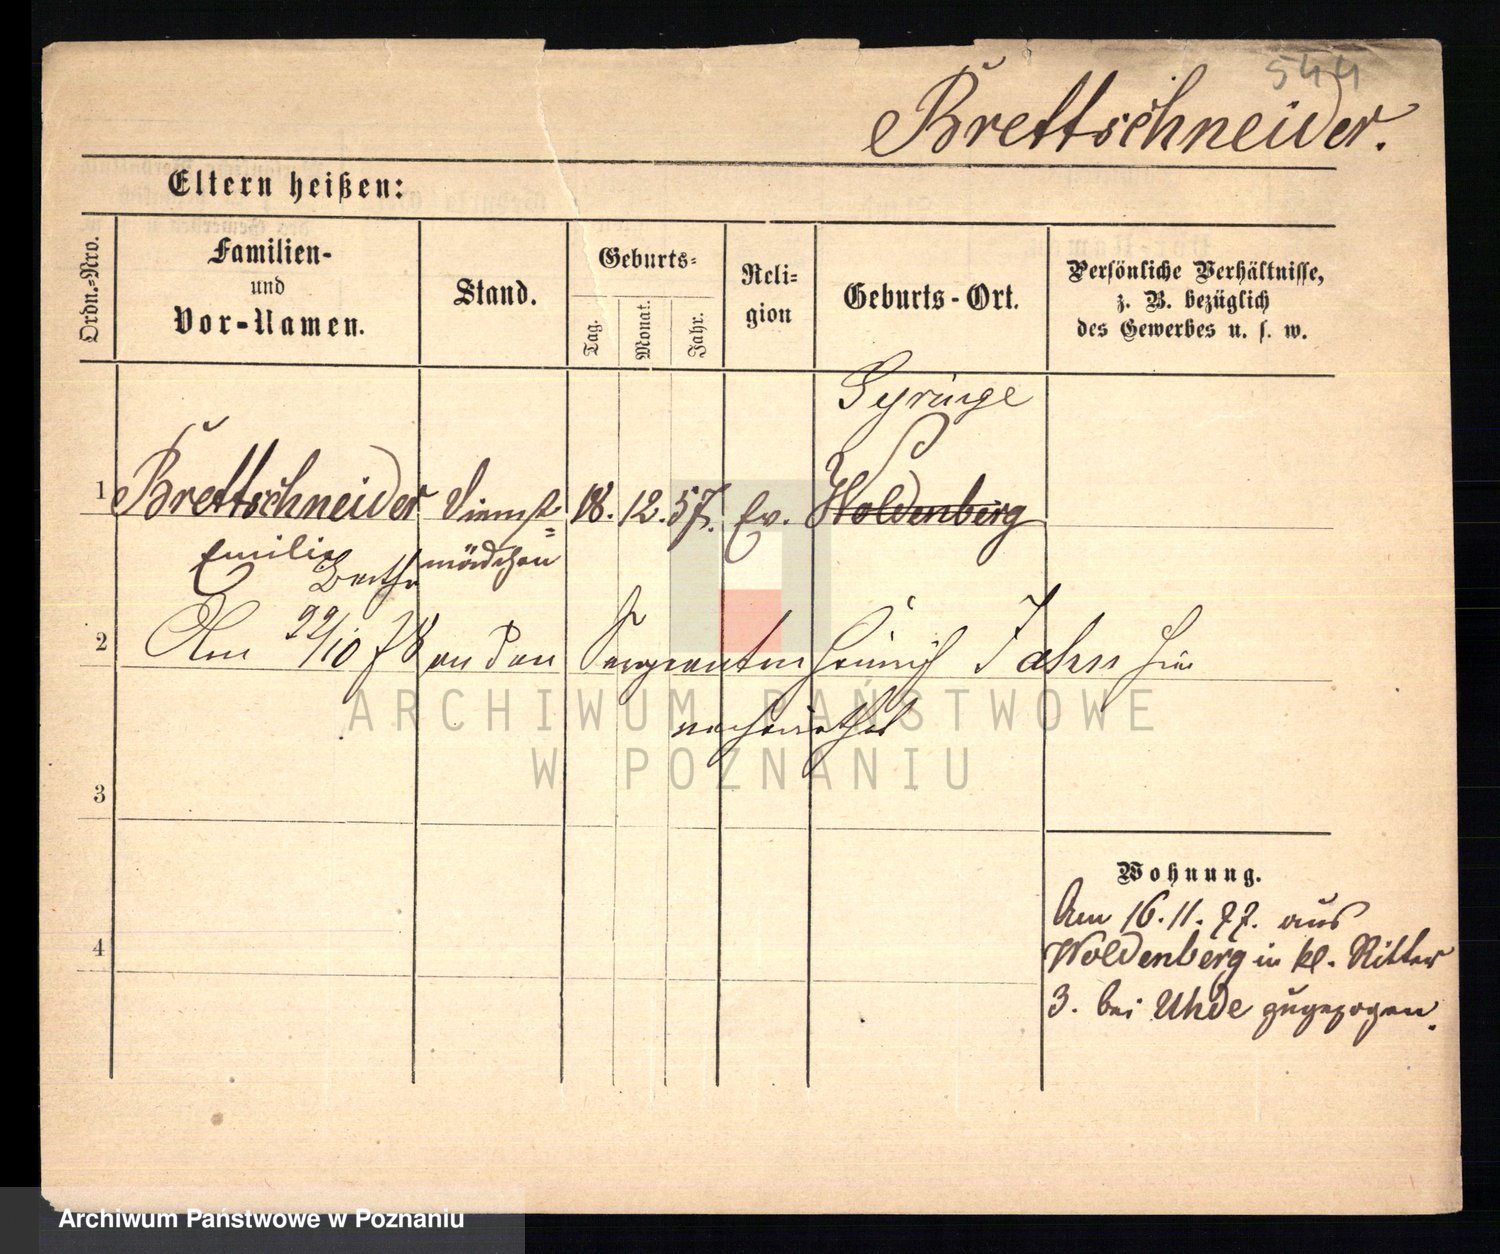 544
Brettschneider.
Eltern heißen:
Ordn.-Nro.
Familien-
und
Vor-Namen.
Stand.
Geburts-
Tag.
Monat.
Jahr.
Reli-
gion
Geburts-Ort.
Persönliche Verhältnisse,
z. B. bezüglich
des Gewerbes u. s. w.
1 Brettschneider Dienst- 18. 12. 57. Ev. Woldenberg
Emilie Bertha mädchen
2 Am 22/10 78 an den Sergeanten Heinrich Jahn hier
verheirathet
3
4
Wohnung.
Am 16. 11. 77. aus
Woldenberg in kl. Ritter
3. bei Uhde zugezogen.
ARCHIWUM PAŃSTWOWE
W POZNANIU
Archiwum Państwowe w Poznaniu